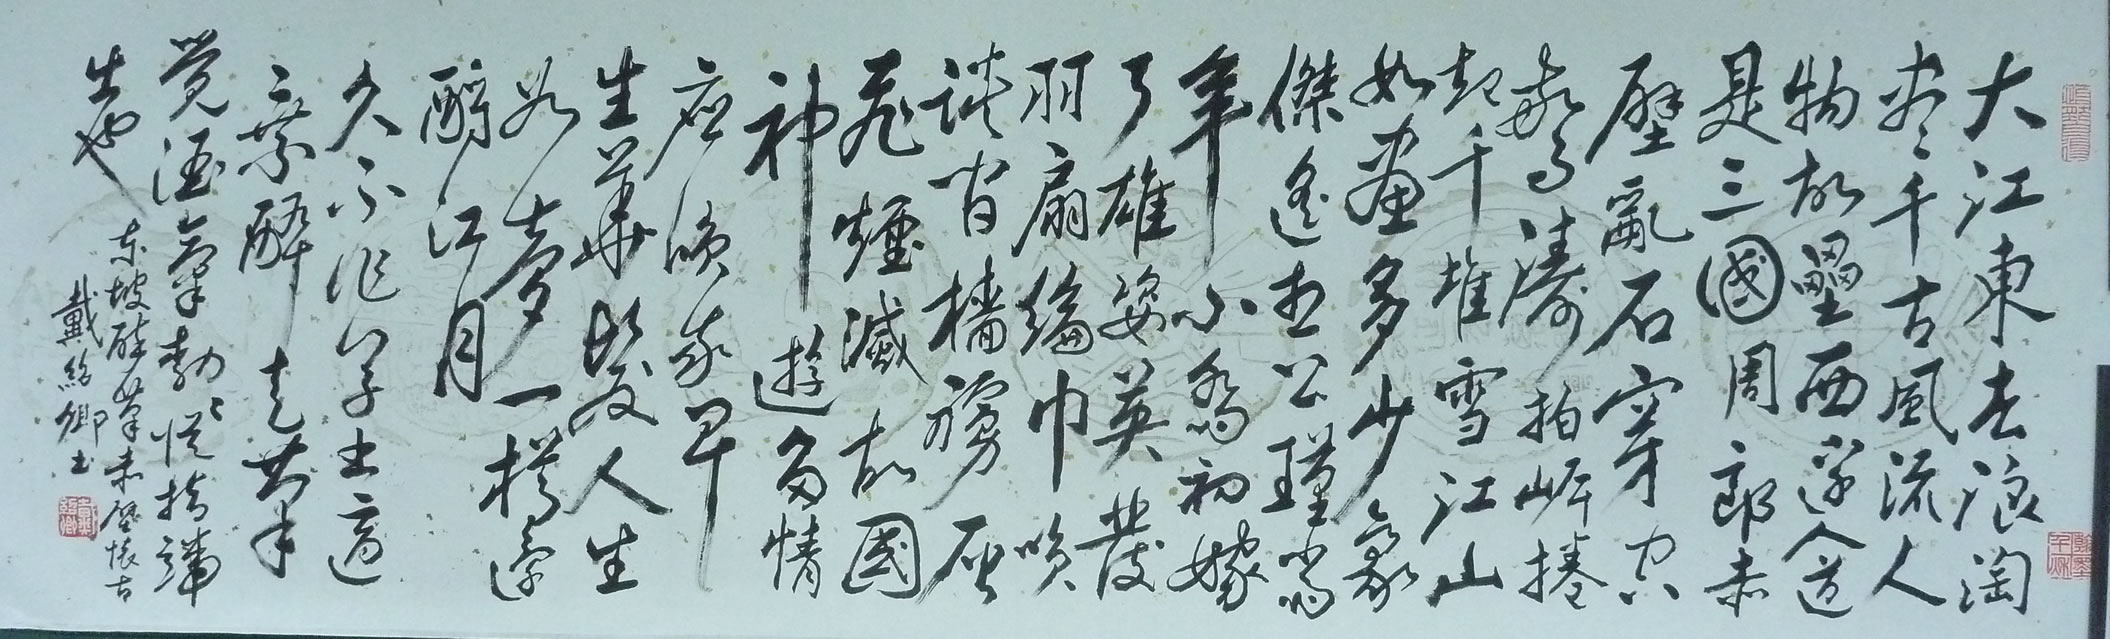 大江東去浪淘
盡千古風流人
物故壘西邊人道
是三國周郎赤
壁亂石穿空
驚濤拍岸捲
起千堆雪江山
如畫多少豪
傑遙想公瑾當
年小喬初嫁
了雄姿英發
羽扇綸巾笑
談間檣櫓灰
飛煙滅故國
神遊多情
應笑我早
生華髮人生
如夢一樽還
酹江月
久不作草書適
乘醉走筆
覺酒氣勃勃從指端
出也
東坡醉筆赤壁懷古
戴紹卿書